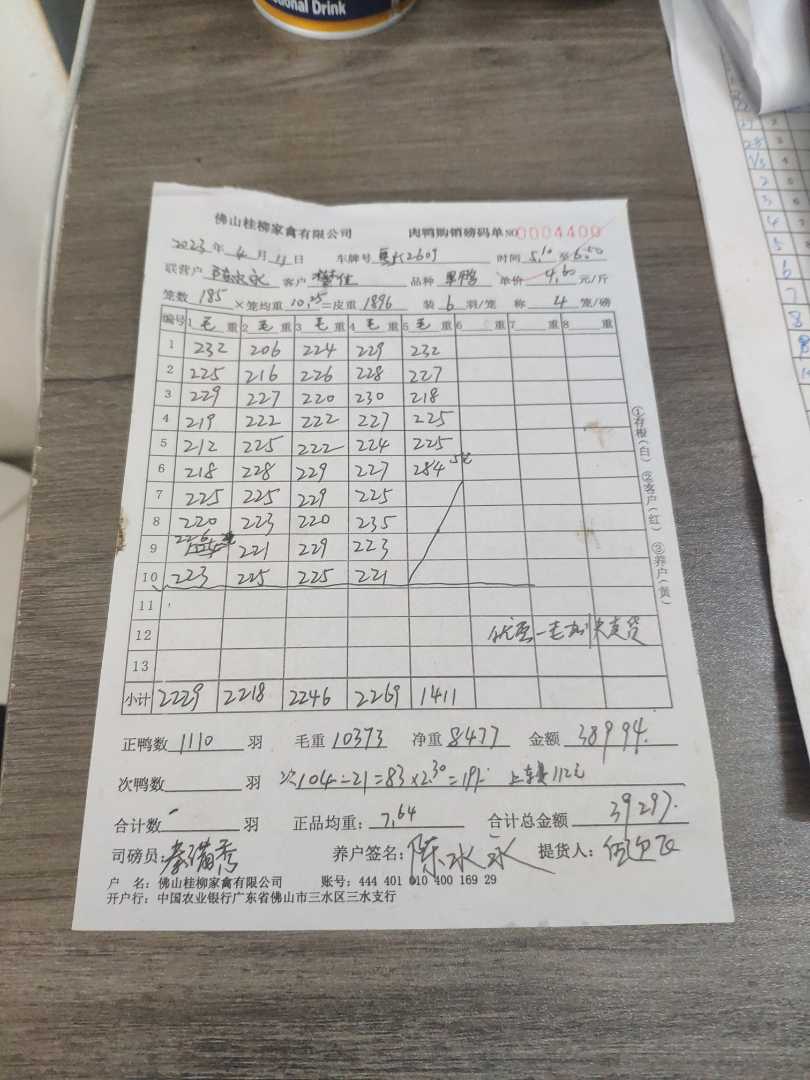 ional Drink
佛山桂柳家禽有限公司 肉鸭购销磅码单 NO 0004400
2023年4月11日 车牌号 2609 时间 5.10 至 6.50
联营户 陈水永 客户 品种 单价 4.60 元/斤
笼数 185 ×笼均重 10.25 =皮重 1896 装 6 羽/笼 称 4 笼/磅
编号 1 毛 重 2 毛 重 3 毛 重 4 毛 重 5 毛 重 6 重 7 重 8 重
1 232 206 224 229 232
2 225 216 226 228 227
3 229 227 220 230 218
4 219 222 222 227 225
5 212 225 222 224 225
6 218 228 229 227 284 5笼
7 225 225 229 225
8 220 223 220 235
9 226 221 229 223
10 223 225 225 221
11
12
13
小计 2229 2218 2246 2269 1411
①存根(白) ②客户(红) ③养户(黄)
正鸭数 1110 羽 毛重 10373 净重 8477 金额 38994.
次鸭数 羽 次104-21=83×2.30=191. 上车费112元
合计数 羽 正品均重: 7.64 合计总金额 39297.
司磅员: 秦满秀 养户签名: 陈水永 提货人:
户 名: 佛山桂柳家禽有限公司 账号: 444 401 010 400 169 29
开户行: 中国农业银行广东省佛山市三水区三水支行